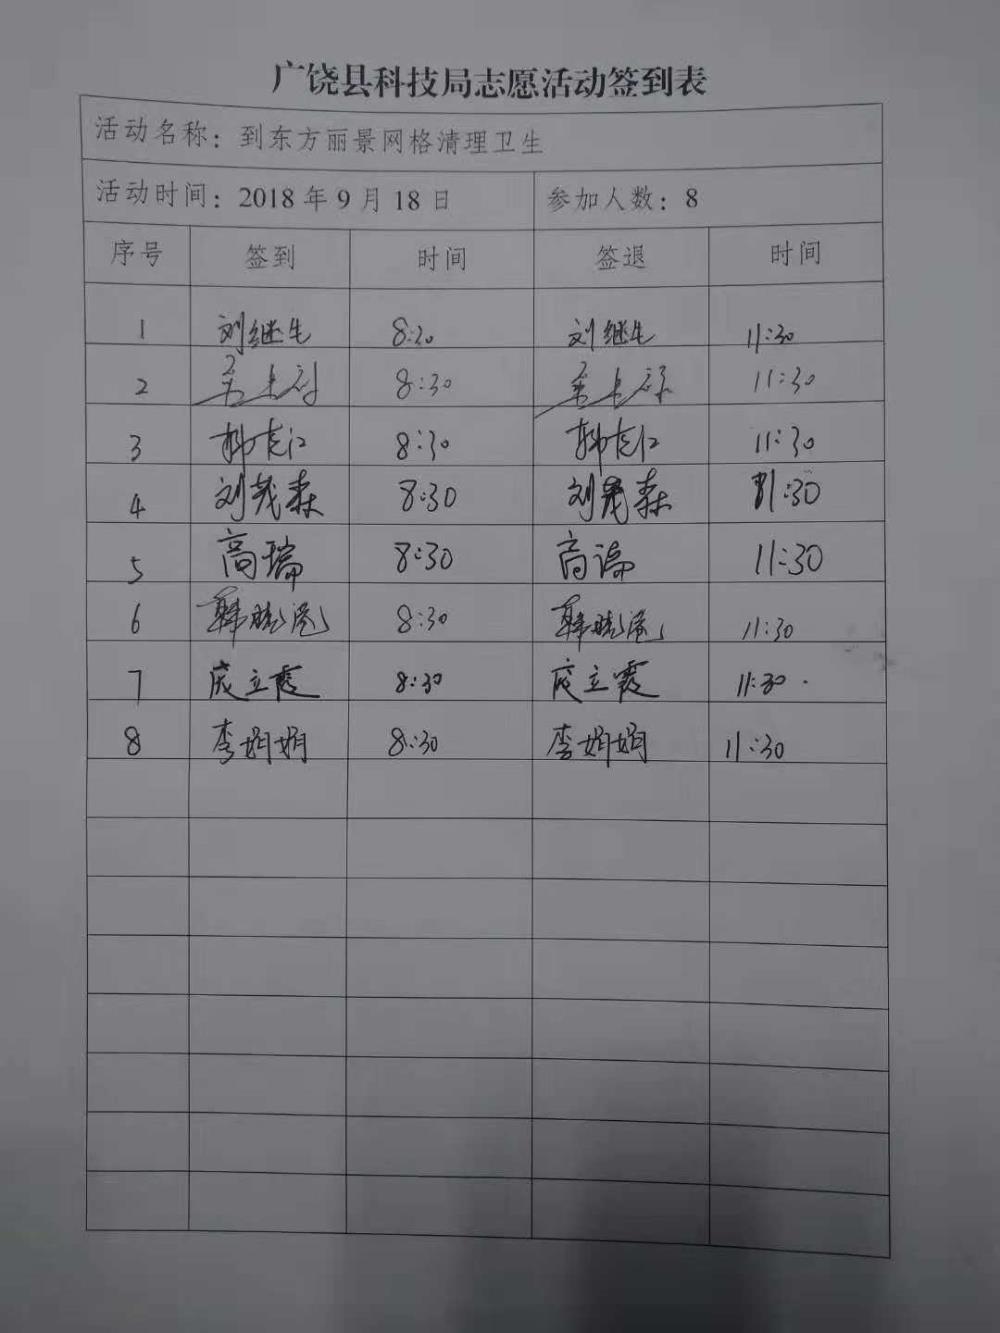 广饶县科技局志愿活动签到表
活动名称：到东方丽景网格清理卫生
活动时间：2018年9月18日 参加人数：8
序号 签到 时间 签退 时间
1 刘继生 8:30 刘继生 11:30
2 8:30 11:30
3 8:30 11:30
4 刘茂森 8:30 刘茂森 11:30
5 高瑞 8:30 高瑞 11:30
6 韩晓 8:30 韩晓 11:30
7 立霞 8:30 立霞 11:30
8 李娟娟 8:30 李娟娟 11:30